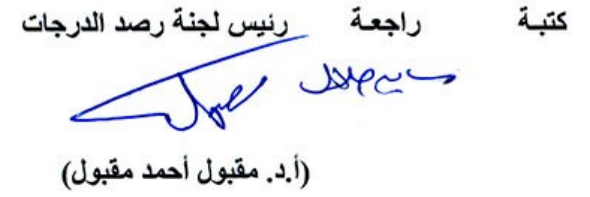 كتبة راجعة رئيس لجنة رصد الدرجات
(أ.د. مقبول أحمد مقبول)